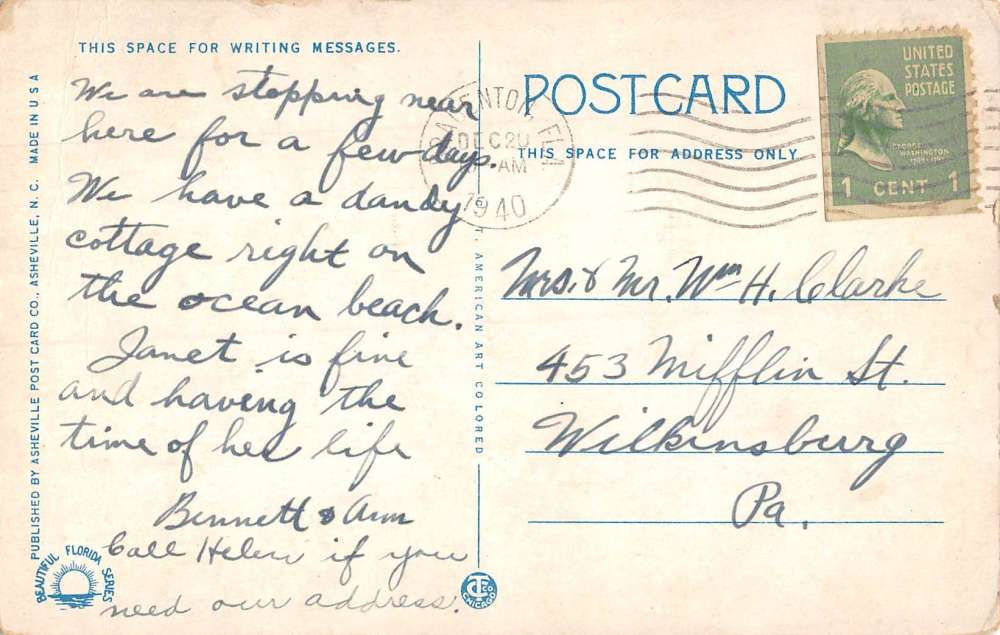 THIS SPACE FOR WRITING MESSAGES.
We are stopping near
here for a few days.
We have a dandy
cottage right on
the ocean beach.
Janet is fine
and having the
time of her life
Bennett & Ann
Call Helen if you
need our address.
PUBLISHED BY ASHEVILLE POST CARD CO., ASHEVILLE, N. C. MADE IN U S A
BEAUTIFUL FLORIDA SERIES
AMERICAN ART COLORED
C.T. CO CHICAGO
POSTCARD
THIS SPACE FOR ADDRESS ONLY
ENTON, FLA
DEC 20
AM
1940
UNITED
STATES
POSTAGE
GEORGE
WASHINGTON
1 CENT 1
Mrs. & Mr. Wm H. Clarke
453 Mifflin St.
Wilkinsburg
Pa.